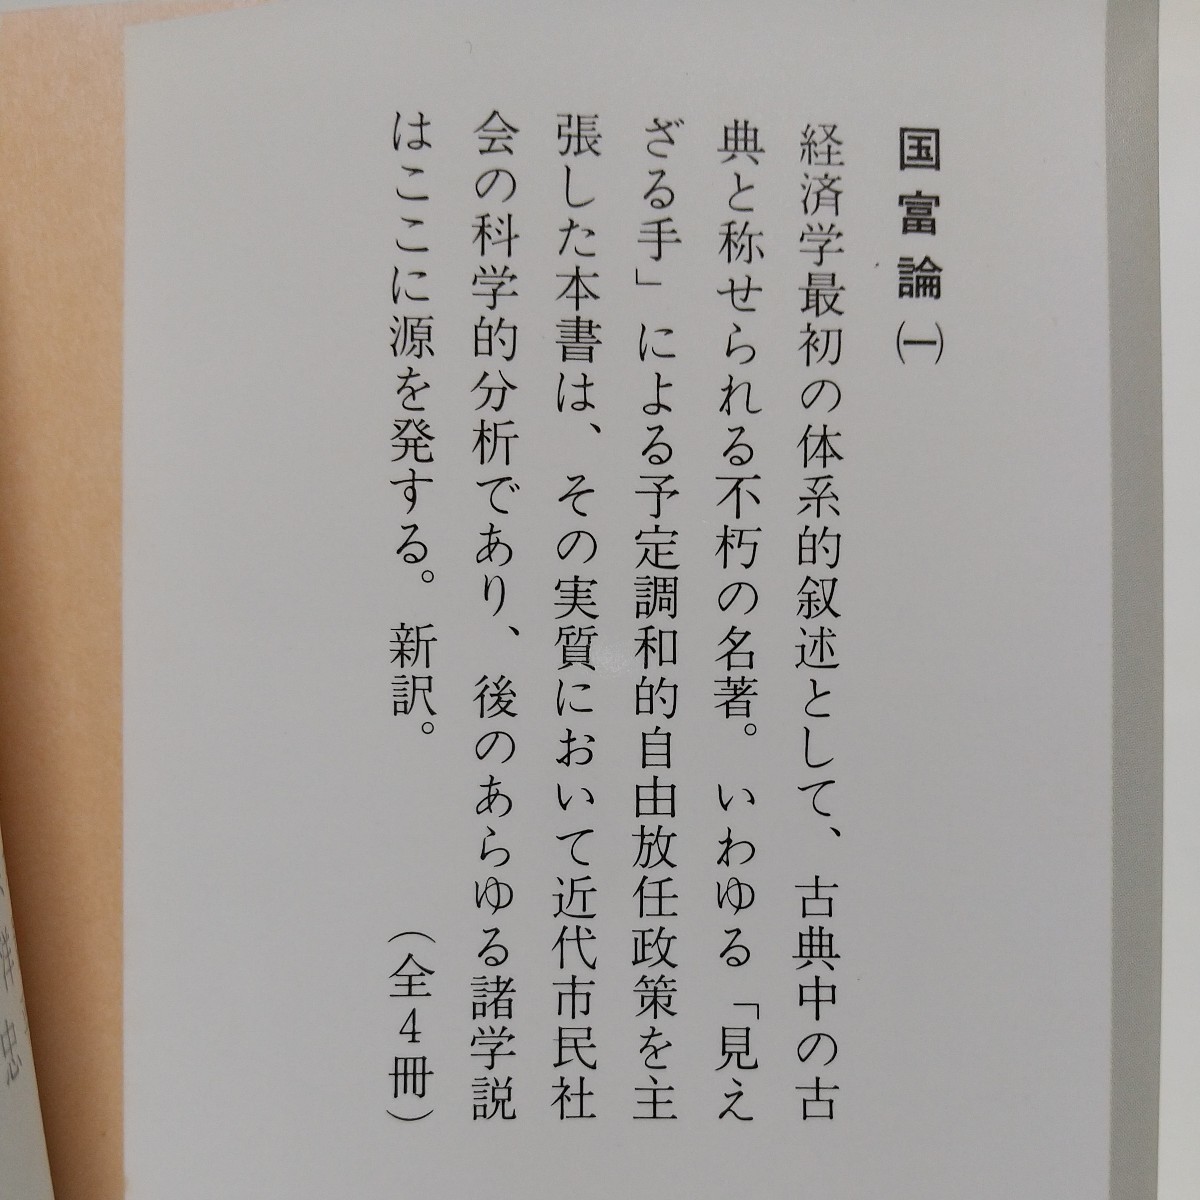 国富論㈠
経済学最初の体系的叙述として、古典中の古
典と称せられる不朽の名著。いわゆる「見え
ざる手」による予定調和的自由放任政策を主
張した本書は、その実質において近代市民社
会の科学的分析であり、後のあらゆる諸学説
はここに源を発する。新訳。（全4冊）
洋
忠